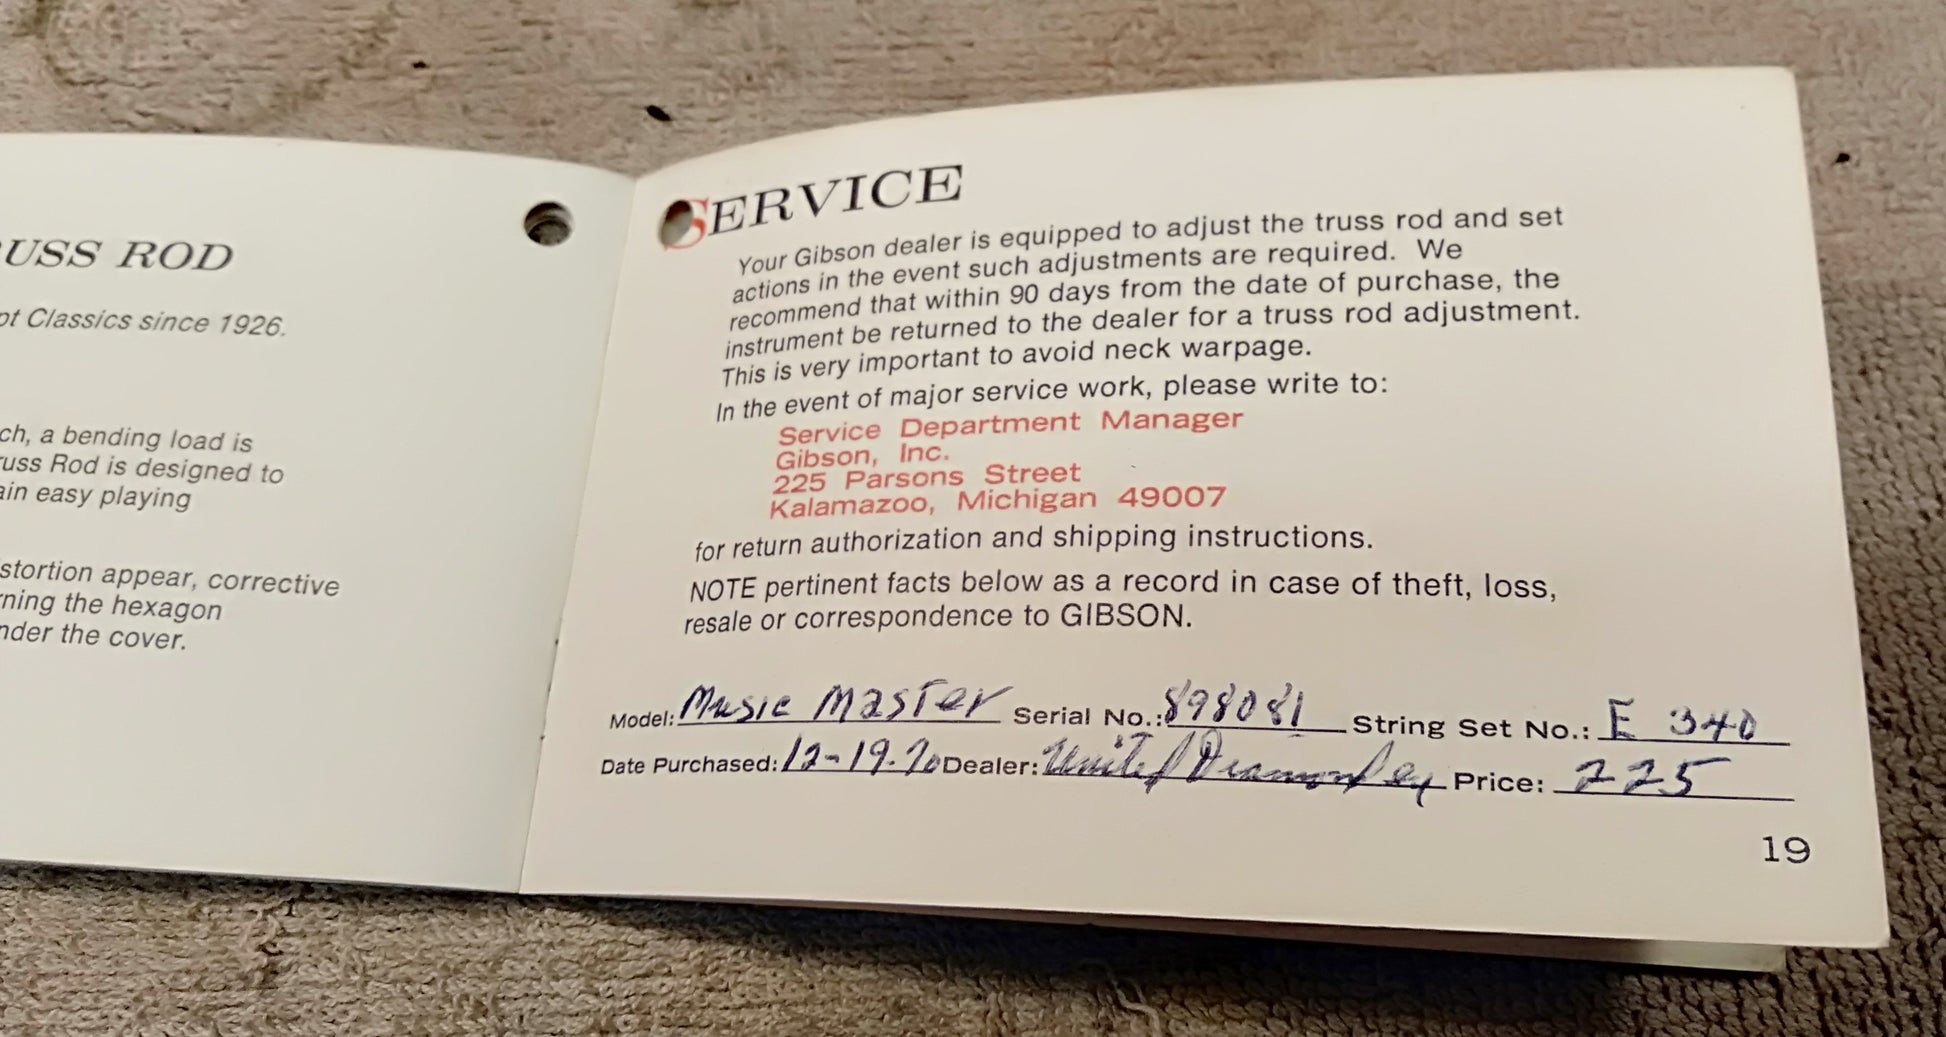 USS ROD
pt Classics since 1926.
ch, a bending load is
russ Rod is designed to
ain easy playing
stortion appear, corrective
rning the hexagon
nder the cover.
SERVICE
Your Gibson dealer is equipped to adjust the truss rod and set
actions in the event such adjustments are required. We
recommend that within 90 days from the date of purchase, the
instrument be returned to the dealer for a truss rod adjustment.
This is very important to avoid neck warpage.
In the event of major service work, please write to:
Service Department Manager
Gibson, Inc.
225 Parsons Street
Kalamazoo, Michigan 49007
for return authorization and shipping instructions.
NOTE pertinent facts below as a record in case of theft, loss,
resale or correspondence to GIBSON.
Model: Music Master Serial No.: 898081 String Set No.: E 340
Date Purchased: 12-19-70 Dealer: United Price: 225
19